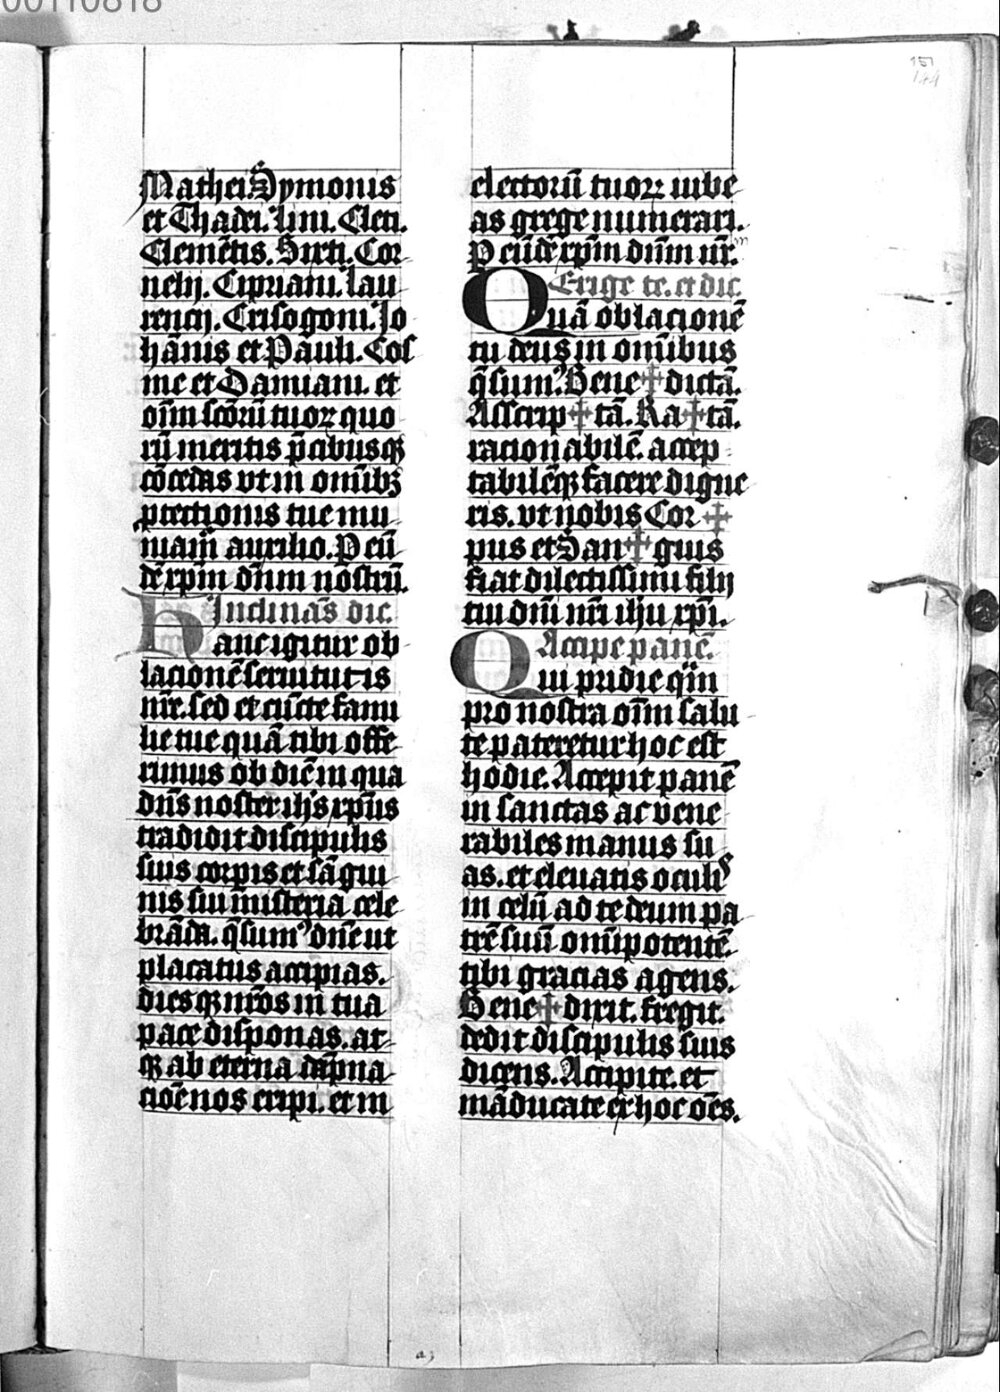 00110818
151
144
Mathei Symonis
et Thadei. Lini. Cleti.
Clemētis. Sixti. Cor
nelij. Cipriani. Lau
rencij. Crisogoni. Jo
hānis et Pauli. Cos
me et Damiani. et
oīm scōrū tuoꝝ quo
rū meritis p̄cibusqꝫ
cōcedas vt in omībꝫ
ꝓtectionis tue mu
niam̄ auxilio. P eū
dē xpm̄ dn̄m nostrū.
Inclinās dic.
Hanc igitur ob
lacionē seruitutis
nr̄e. sed et cūcte fami
lie tue quā tibi offe
rimus ob diē in qua
dn̄s noster ihs̄ xpūs
tradidit discipulis
suis corpis et sāgui
nis sui misteria cele
brāda. q̄sumꝰ dn̄e ut
placatus accipias.
diesqꝫ nr̄os in tua
pace disponas. at
qꝫ ab eterna dāpna
cioē nos eripi. et in
electorū tuoꝝ iube
as grege numerari.
P eūdē xpm̄ dn̄m nr̄m.
Erige te. et dic.
Quā oblacionē
tu deus in omībus
q̄sumꝰ. Bene ✝ dictā.
Asscrip ✝ tā. Ra ✝ tā.
racionabilē. accep
tabilēqꝫ facere digne
ris. vt nobis Cor ✝
pus et San ✝ guis
fiat dilectissimi filij
tui dn̄i nr̄i ihū xp̄i.
Accipe panē.
Qui pridie q̄m
pro nostra oīm salu
te pateretur hoc est
hodie. Accepit panē
in sanctas ac vene
rabiles manus su
as. et eleuatis oculis
in celū ad te deum pa
trē suū omīpotentē.
tibi gracias agens.
Bene ✝ dixit. fregit.
dedit discipulis suis
dicens. Accipite. et
māducate ex hoc oēs.